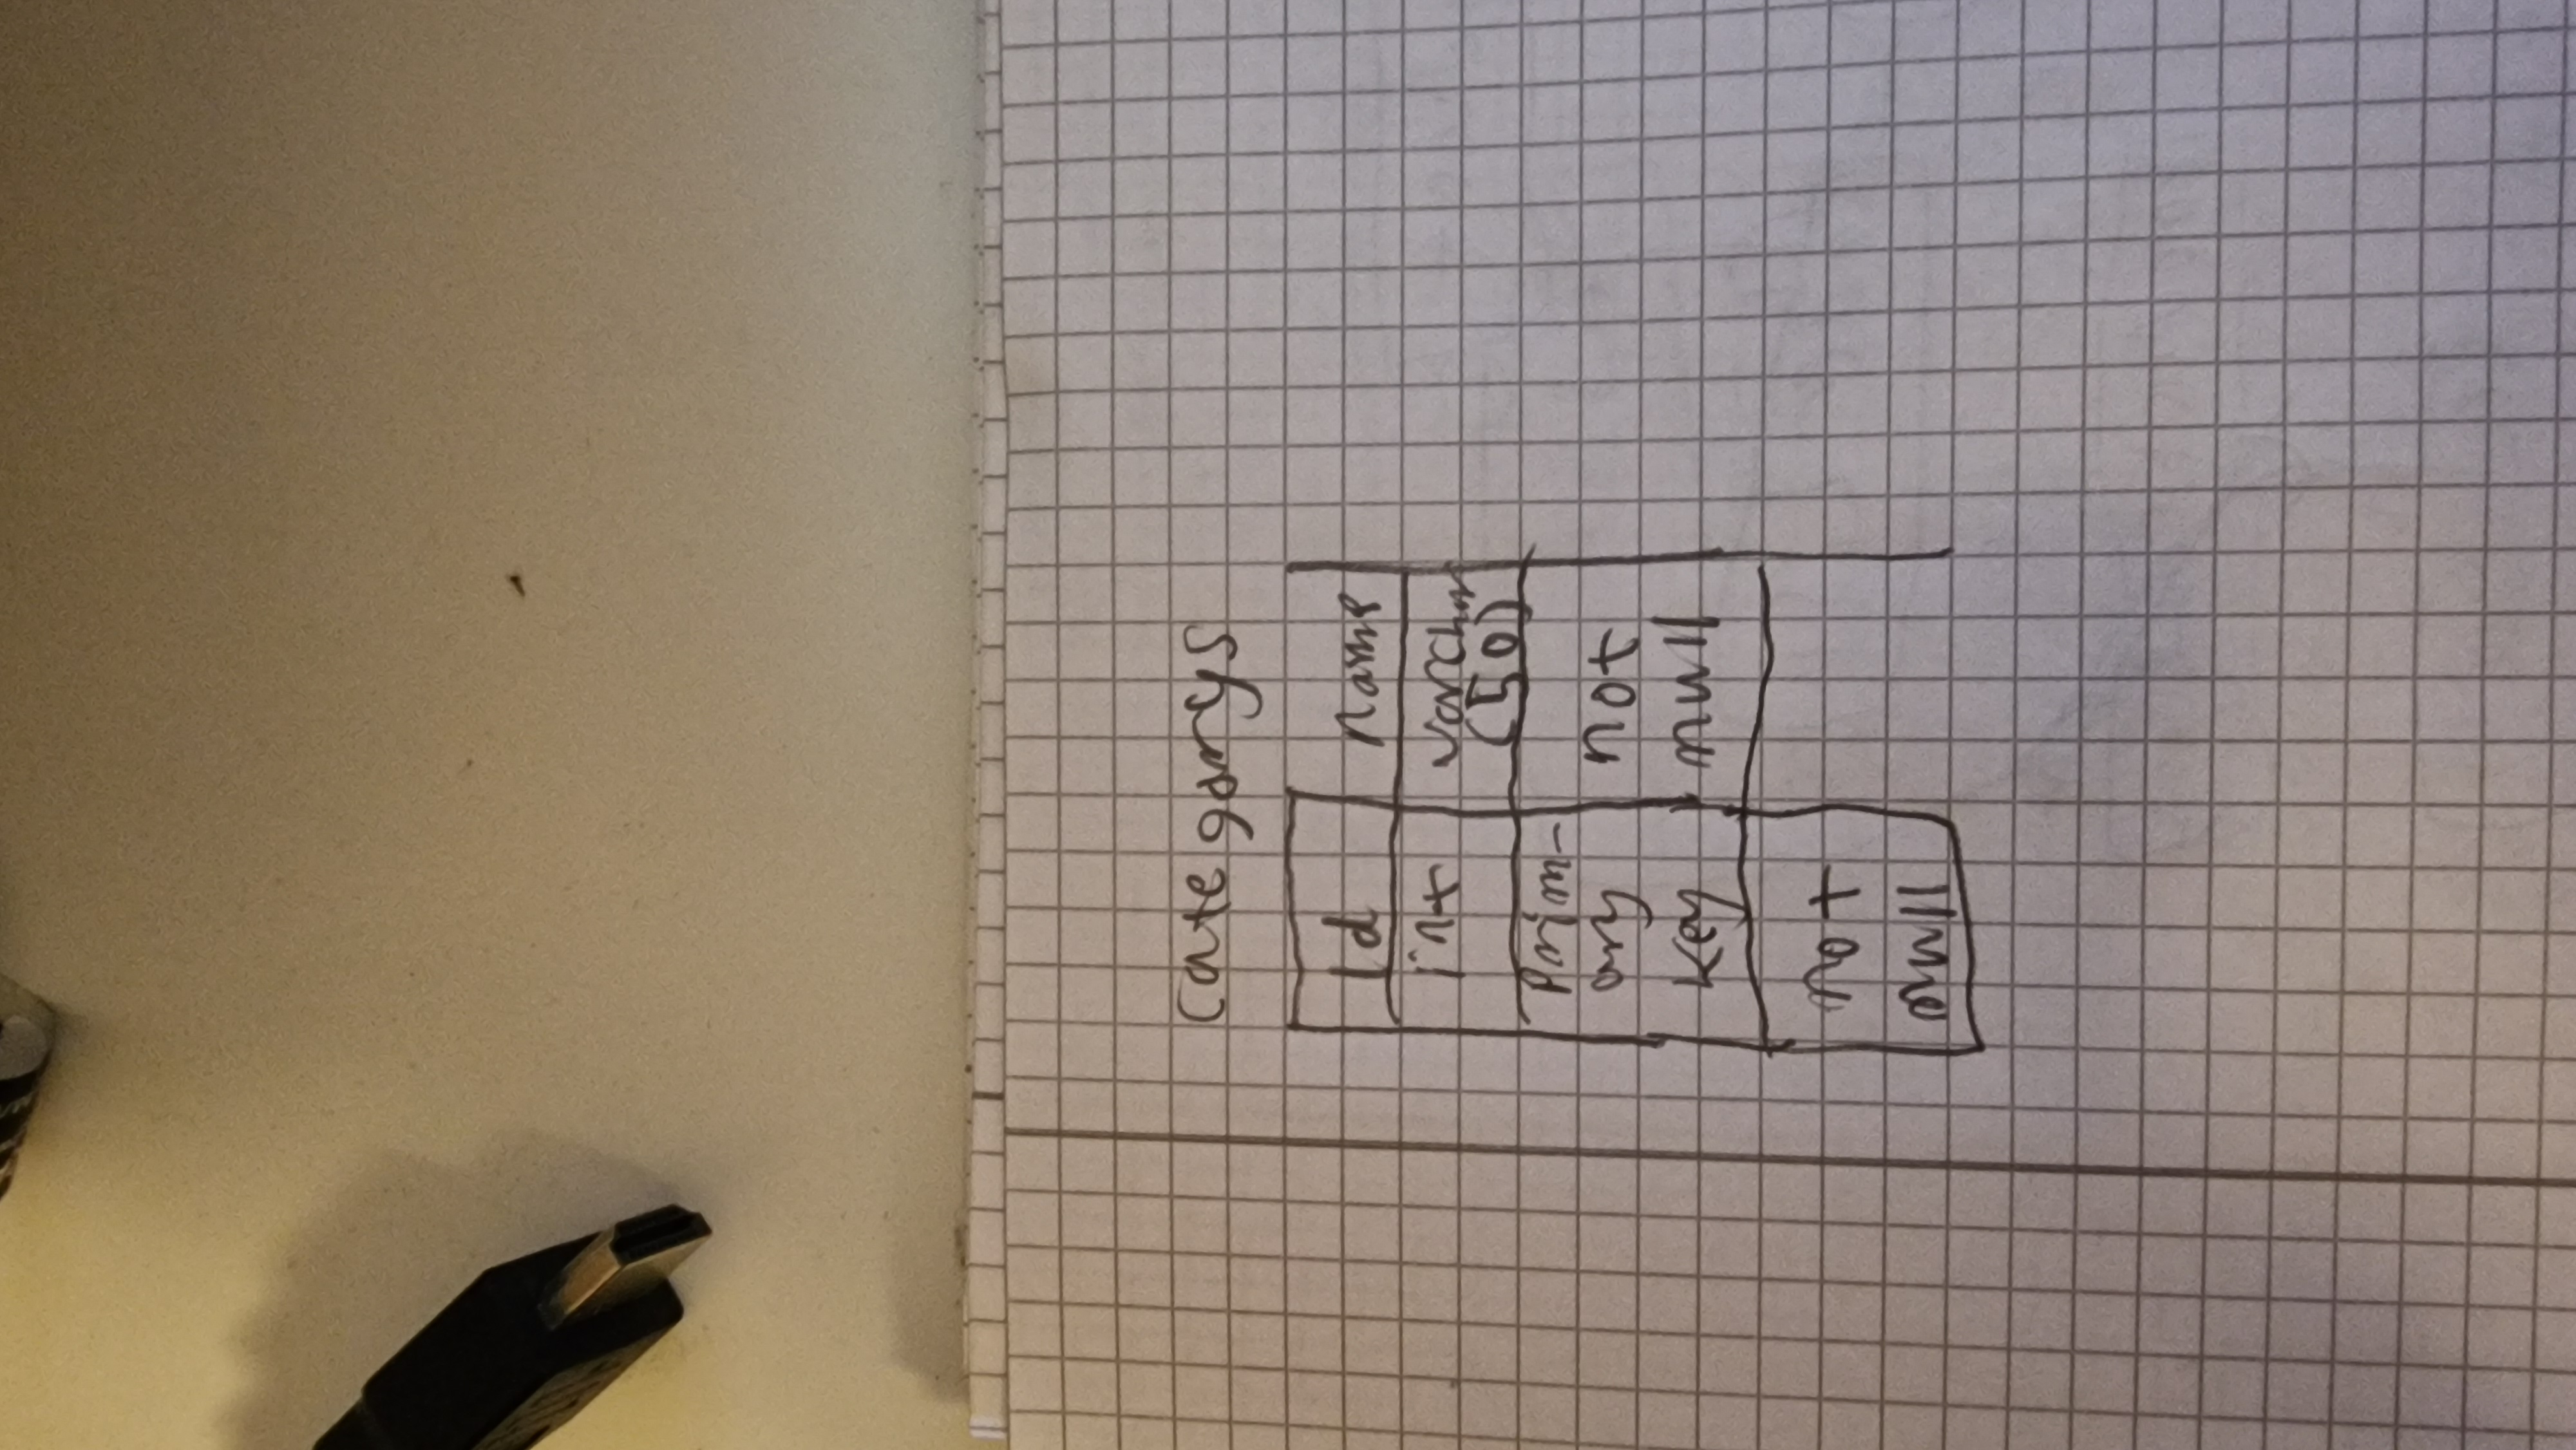 categorys
Id name
int varchar
(50)
Prim-
ary not
key null
not
null